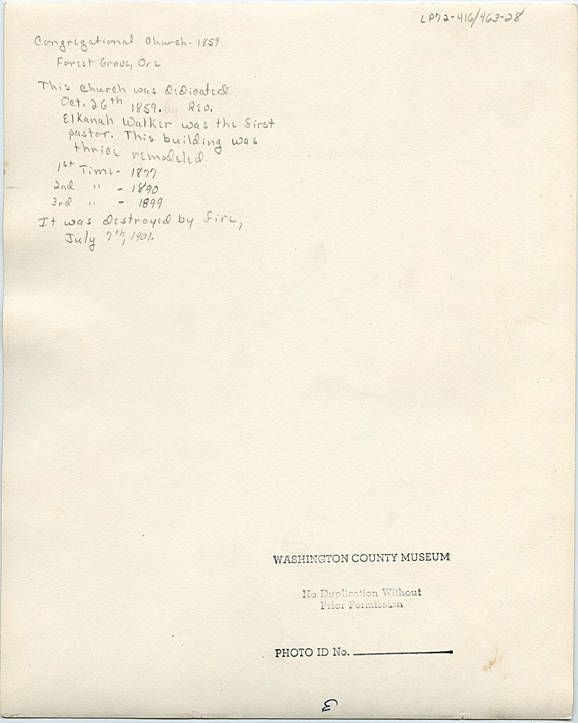 LP72-416/463-28
Congregational Church - 1859
Forest Grove, Ore
This church was dedicated
Oct. 26th 1859. Rev.
Elkanah Walker was the first
pastor. This building was
thrice remodeled.
1st Time - 1877
2nd " - 1890
3rd " - 1899
It was destroyed by fire,
July 7th, 1901.
WASHINGTON COUNTY MUSEUM
No Duplication Without
Prior Permission
PHOTO ID No.
3